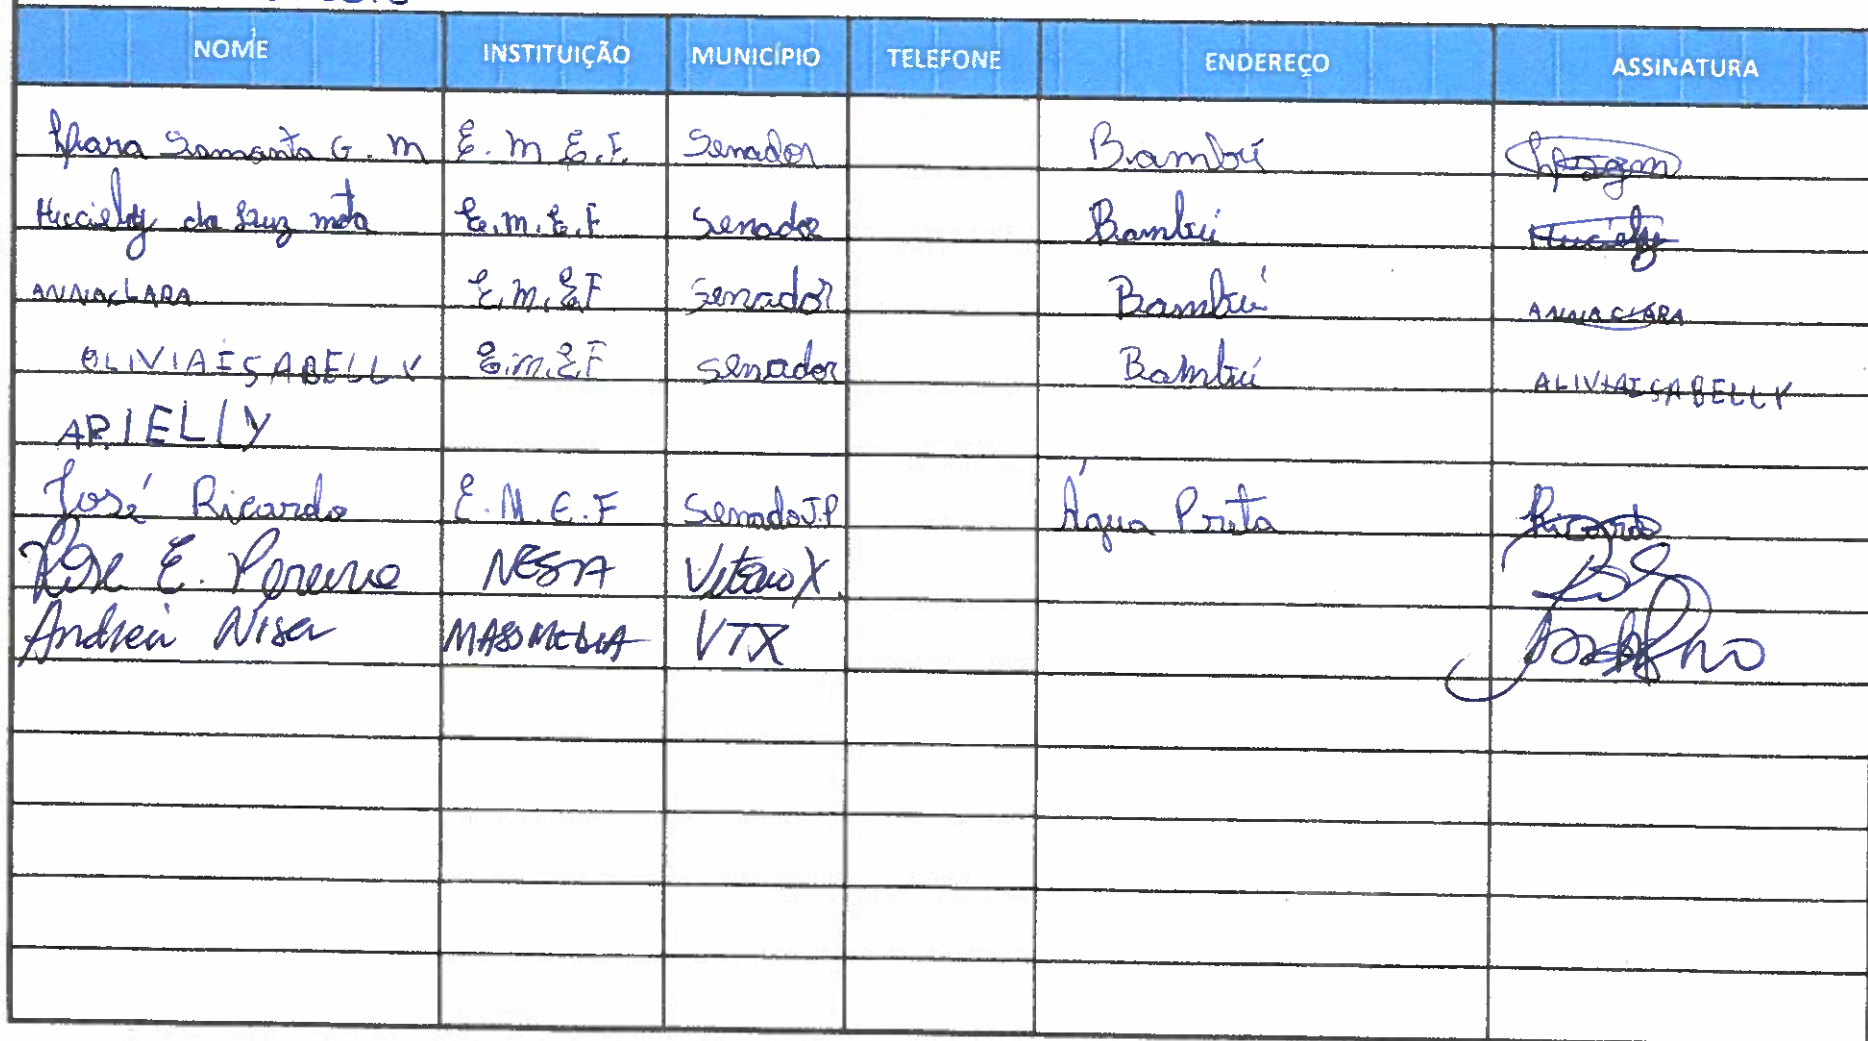 NOME INSTITUIÇÃO MUNICÍPIO TELEFONE ENDEREÇO ASSINATURA
Samanta G. M E. M E. F. Senador Bambú
da Luz mota E. m. E. F Senador Bambú
ANNACLARA E. m. E F Senador Bambú ANNA CLARA
OLIVIAISABELLY E. m. E F Senador Bambú ALIVIAISABELLY
ARIELLY
José Ricardo E. M. E. F Senado J.P Água Preta Ricardo
E. Pereira NESA Vitória X
Andreia MASSMEDIA VTX